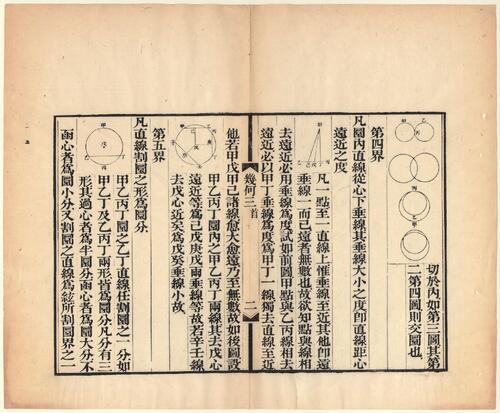 切於內如第三圖其第
二第四圖則交圜也
第四界
凡圜內直線從心下垂線其垂線大小之度即直線距心
遠近之度
凡一點至一直線上惟垂線至近其他即遠
垂線一而已遠者無數也故欲知點與線相
去遠近必用垂線為度試如前圖甲點與乙丙線相去
遠近必以甲丁垂線為度為甲丁一線獨去直線至近
幾何三首
二
他若甲戊甲己諸線愈大愈遠乃至無數故如後圖設
甲乙丙丁圜內之甲乙丙丁兩線其去戊心
遠近等為己戊庚戊兩垂線等故若辛壬線
去戊心近矣為戊癸垂線小故
第五界
凡直線割圜之形為圜分
甲乙丙丁圜之乙丁直線任割圜之一分如
甲乙丁及乙丙丁兩形皆為圜分凡分有三
形其過心者為半圜分函心者為圜大分不
函心者為圜小分又割圜之直線為絃所割圜界之一